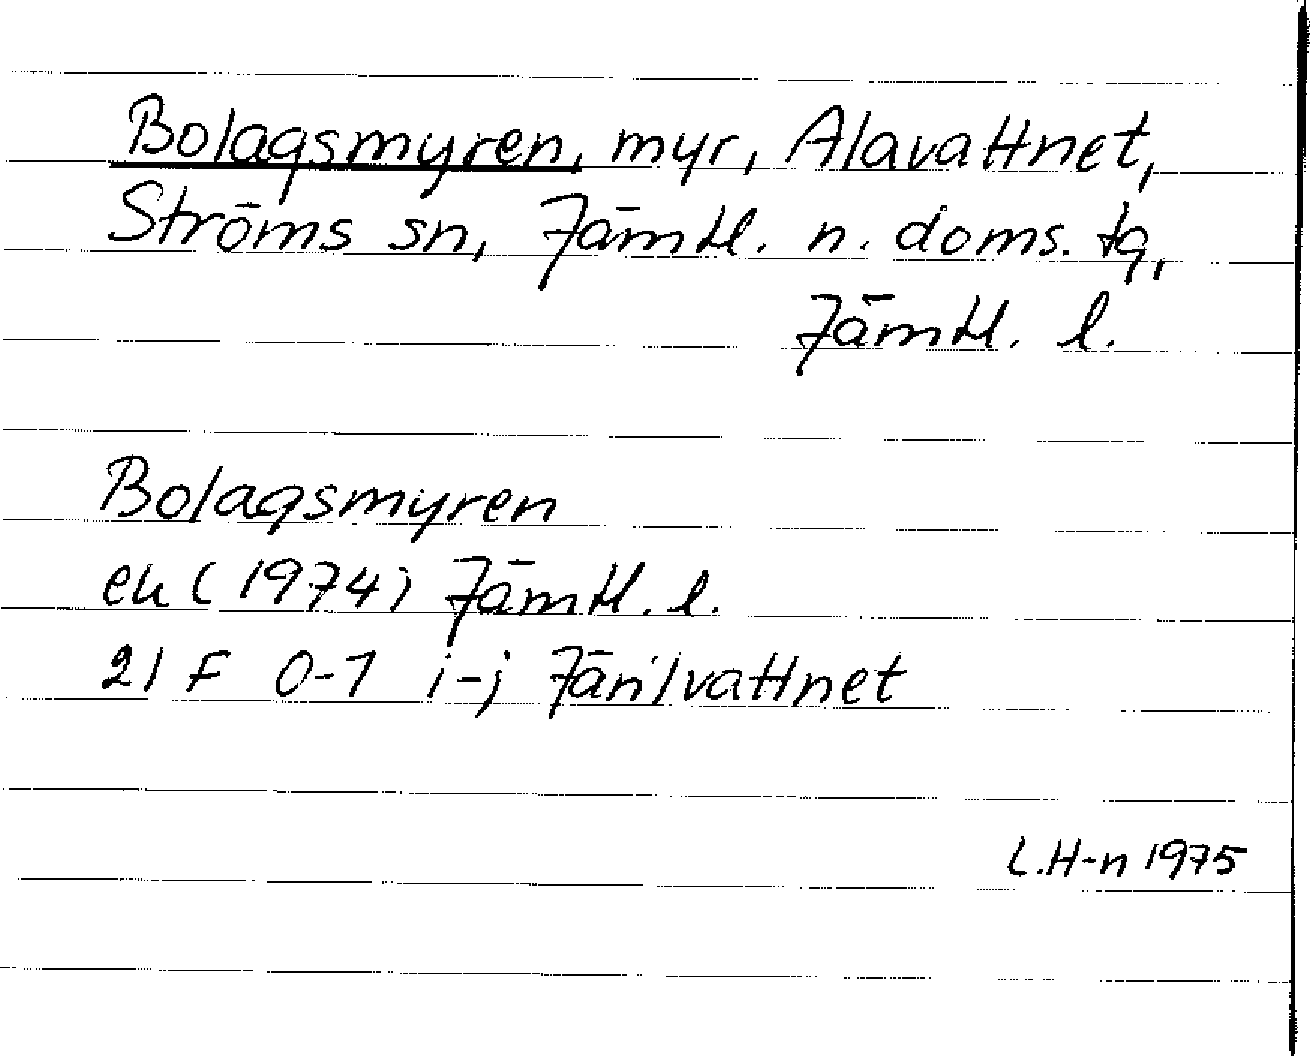 Bolagsmyren, myr, Alavattnet,
Ströms sn, Jämtl. n. doms. tg,
Jämtl. l.
Bolagsmyren
ek (1974) Jämtl. l.
21 F 0-1 i-j Järilvattnet
L.H-n 1975